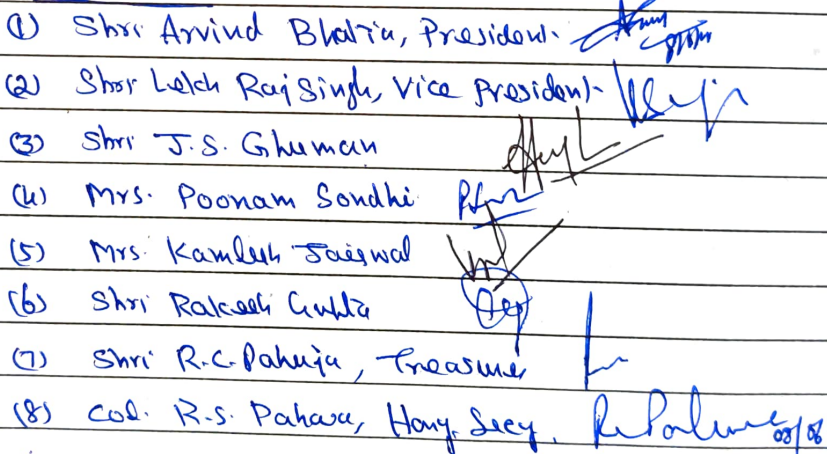 (1) Shri Arvind Bhatia, President.
(2) Shri Lekh Raj Singh, Vice President-
(3) Shri J.S. Ghuman
(4) Mrs. Poonam Sondhi
(5) Mrs. Kamlesh Jaiswal
(6) Shri Rakesh Gupta
(7) Shri R.C. Pahuja, Treasurer
(8) Col. R.S. Pahava, Hony. Secy. 08/06